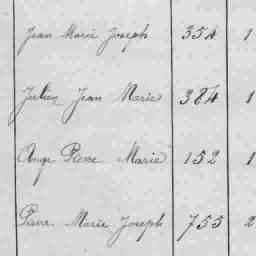 Jean Marie Joseph 354 1
Julien Jean Marie 384 1
Ange Pierre Marie 152 1
Pierre Marie Joseph 755 2